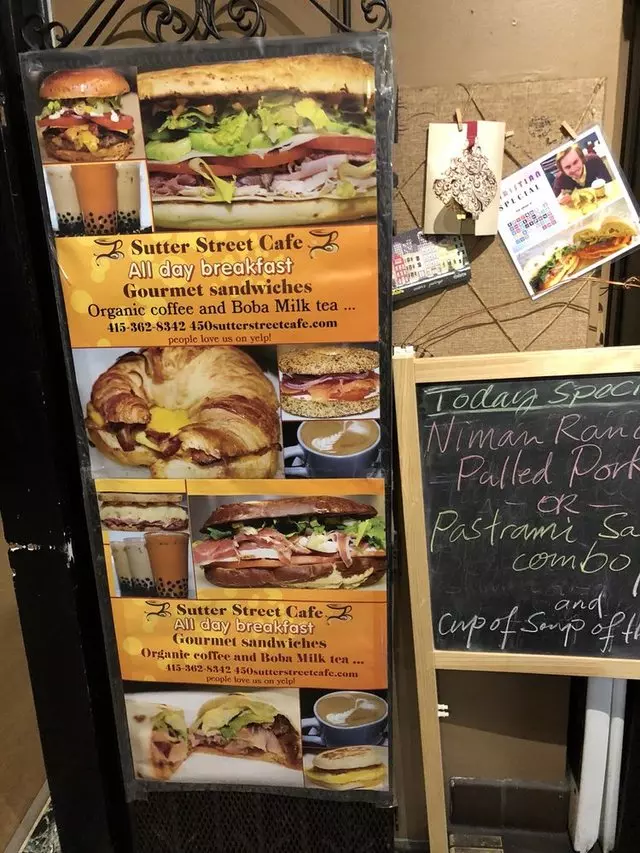 Sutter Street Cafe
All day breakfast
Gourmet sandwiches
Organic coffee and Boba Milk tea ...
415-362-8342 450sutterstreetcafe.com
people love us on yelp!
Sutter Street Cafe
All day breakfast
Gourmet sandwiches
Organic coffee and Boba Milk tea ...
415-362-8342 450sutterstreetcafe.com
people love us on yelp!
SPECIAL
Today Speci
Niman Ran
Palled Pork
OR
Pastrami Sa
combo
and
Cup of Soup of th